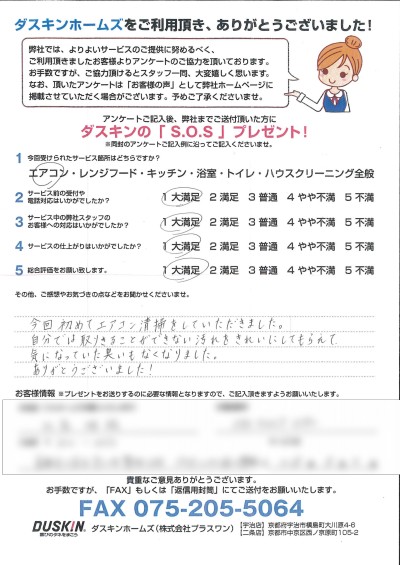 ダスキンホームズをご利用頂き、ありがとうございました！
弊社では、よりよいサービスのご提供に努めるべく、
ご利用頂きましたお客様よりアンケートのご協力を頂いております。
お手数ですが、ご協力頂けるとスタッフ一同、大変嬉しく思います。
なお、頂いたアンケートは「お客様の声」として弊社ホームページに
掲載させていただく場合がございます。予めご了承くださいませ。
アンケートご記入後、弊社までご送付頂いた方に
ダスキンの「S.O.S」プレゼント！
※同封のアンケートご記入例に沿ってご記入くださいませ。
1 今回受けられたサービス箇所はどちらですか？
エアコン・レンジフード・キッチン・浴室・トイレ・ハウスクリーニング全般
2 サービス前の受付や
電話対応はいかがでしたか？ 1 大満足 2 満足 3 普通 4 やや不満 5 不満
3 サービス中の弊社スタッフの
お客様への対応はいかがでしたか？ 1 大満足 2 満足 3 普通 4 やや不満 5 不満
4 サービスの仕上がりはいかがでしたか？ 1 大満足 2 満足 3 普通 4 やや不満 5 不満
5 総合評価をお願い致します。 1 大満足 2 満足 3 普通 4 やや不満 5 不満
その他、ご感想やお気づきの点などをお聞かせくださいませ。
今回初めてエアコン清掃をしていただきました。
自分では取りきることができない汚れをきれいにしてもらえて、
気になっていた臭いもなくなりました。
ありがとうございました！
お客様情報 ※プレゼントをお送りするのに必要な情報となりますので、ご記入頂きますようお願いいたします。
貴重なご意見ありがとうございました。
お手数ですが、「FAX」もしくは「返信用封筒」にてご送付をお願いいたします。
FAX 075-205-5064
DUSKIN 喜びのタネをまこう ダスキンホームズ（株式会社プラスワン）
【宇治店】京都府宇治市槇島町大川原4-6
【二条店】京都市中京区西ノ京原町105-2